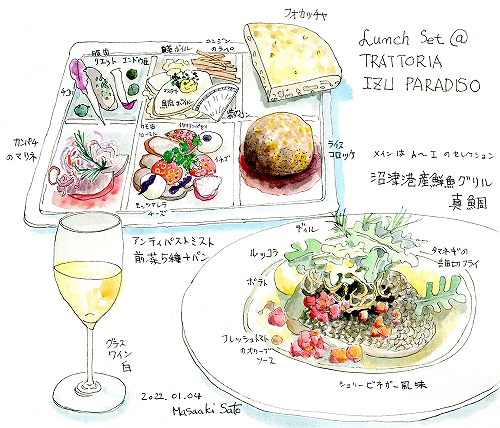 フォカッチャ
Lunch Set @
TRATTORIA
IZU PARADISO
豚肉
リエット
エンドウ豆
チコリ
鯖ボイル
ニンジン
のラペ
カンパチ
のマリネ
鴨肉
ロースト
イタリアンパセリ
イチゴ
モッツァレラ
チーズ
ライス
コロッケ
メインは A〜I のセレクション
沼津港産鮮魚グリル
真鯛
アンティパストミスト
前菜5種+パン
ルッコラ
ディル
タマネギの
ポテト
フレッシュトマト
のオリーブ
ソース
シェリービネガー風味
グラス
ワイン
白
2022.01.04
Masaaki Sato